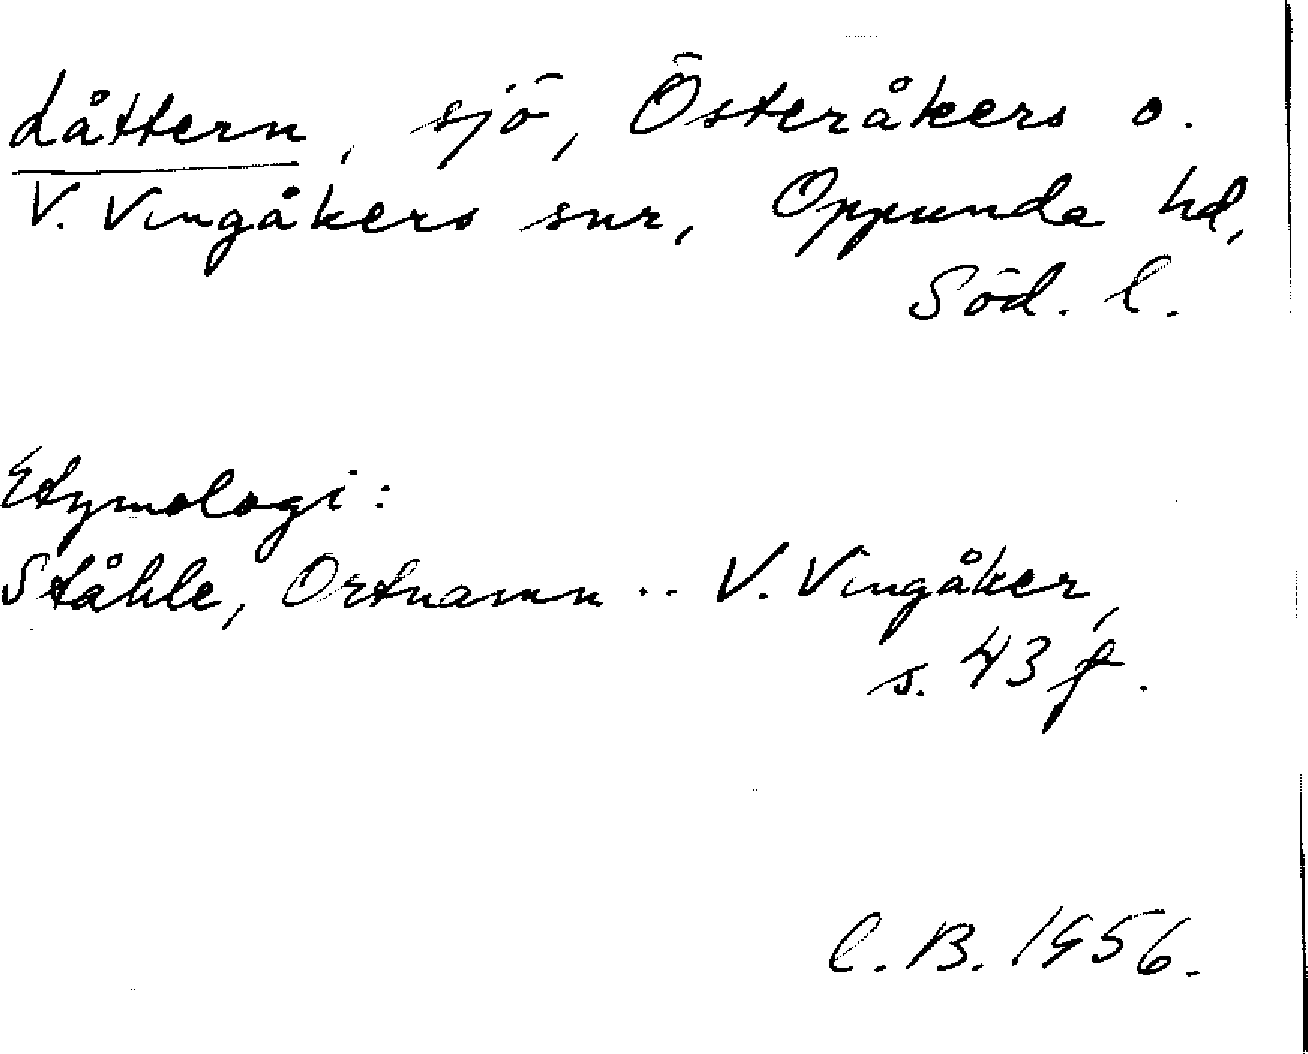 Låttern, sjö, Österåkers o.
V. Vingåkers snr, Oppunda hd,
Söd. l.
Etymologi:
Ståhle, Ortnamn .. V. Vingåker,
s. 43 f.
C. B. 1956.